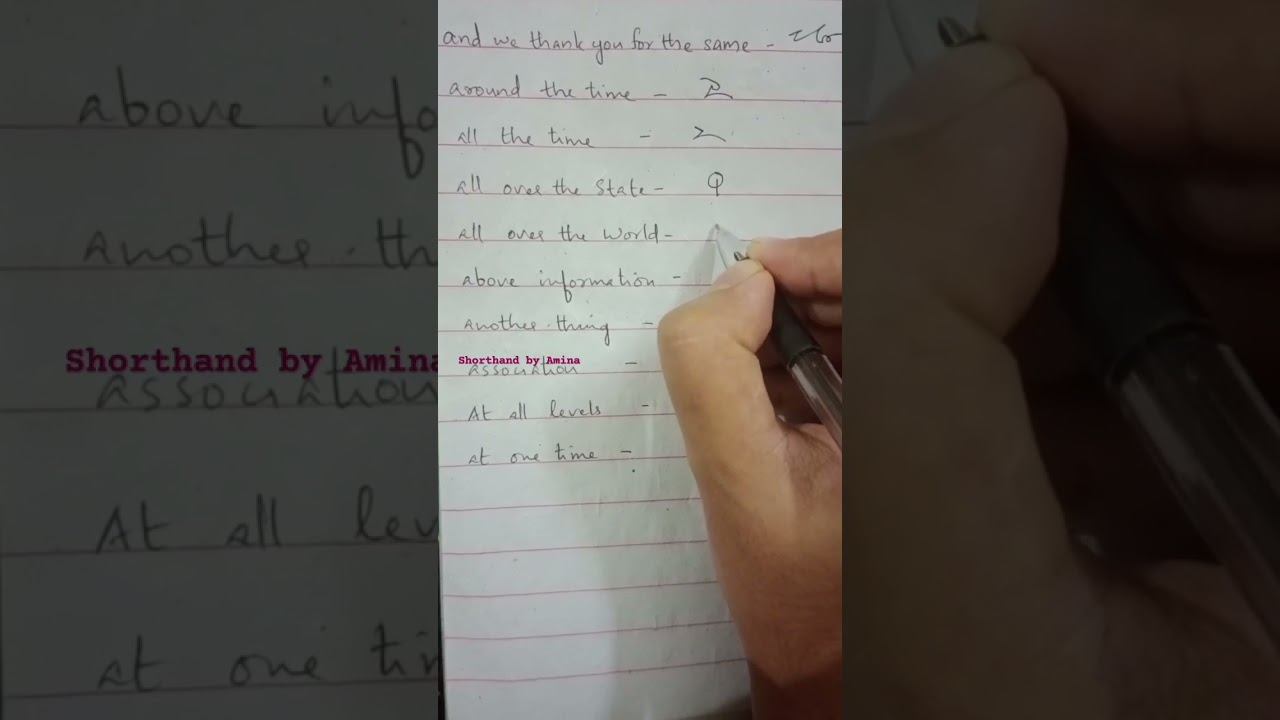 and we thank you for the same -
around the time -
all the time -
all over the State -
all over the world -
above information -
another thing -
Shorthand by Amina
association -
At all levels -
at one time -
above info
another th
Shorthand by Amina
association
At all lev
at one tim